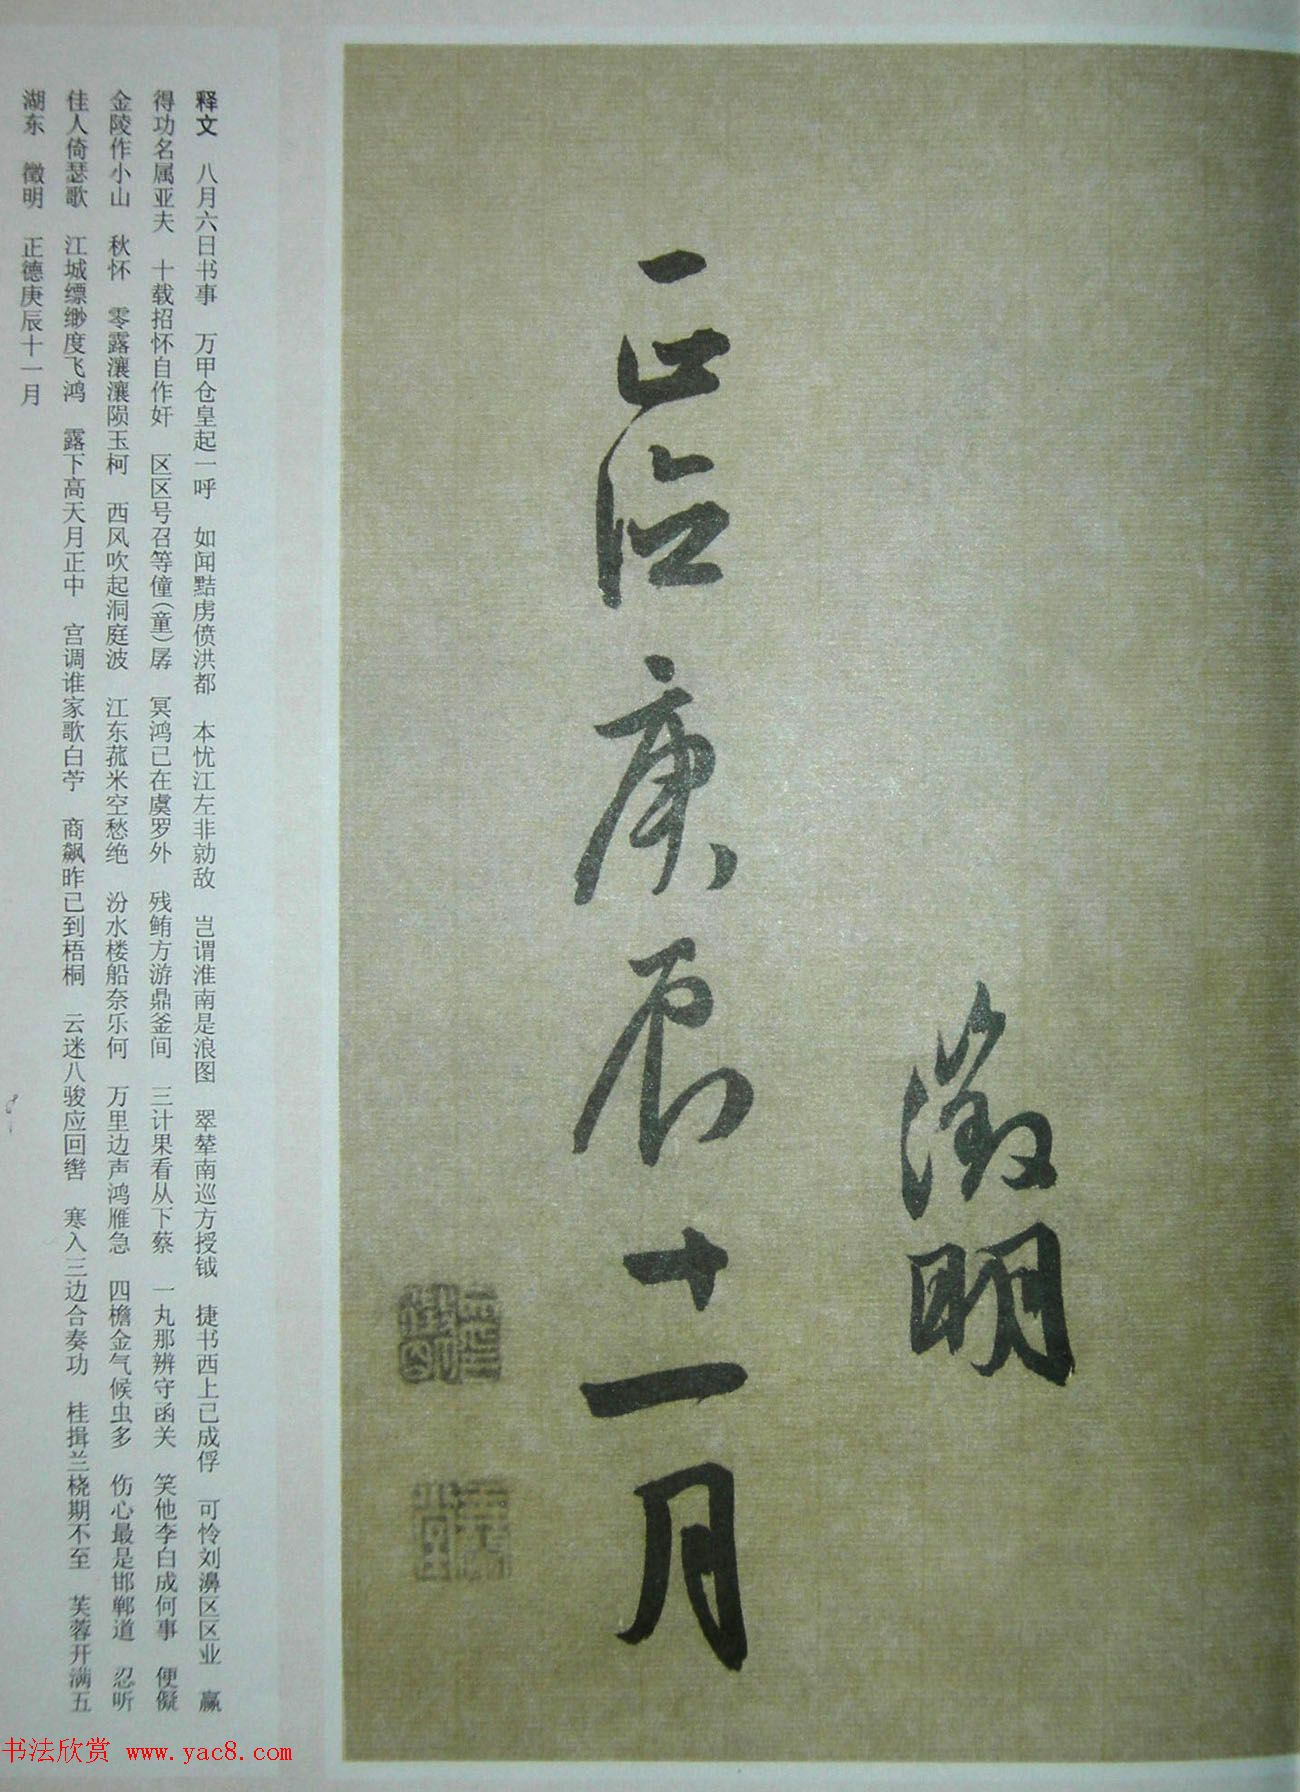 徵明
正德庚辰十一月
释文　八月六日书事　万甲仓皇起一呼　如闻黠虏偾洪都　本忧江左非勍敌　岂谓淮南是浪图　翠辇南巡方授钺　捷书西上已成俘　可怜刘濞区区业　赢
得功名属亚夫　十载招怀自作奸　区区号召等僮(童)孱　冥鸿已在虞罗外　残鲔方游鼎釜间　三计果看从下蔡　一丸那辨守函关　笑他李白成何事　便儗
金陵作小山　秋怀　零露瀼瀼陨玉柯　西风吹起洞庭波　江东菰米空愁绝　汾水楼船奈乐何　万里边声鸿雁急　四檐金气候虫多　伤心最是邯郸道　忍听
佳人倚瑟歌　江城缥缈度飞鸿　露下高天月正中　宫调谁家歌白苧　商飙昨已到梧桐　云迷八骏应回辔　寒入三边合奏功　桂揖兰桡期不至　芙蓉开满五
湖东　徵明　正德庚辰十一月
书法欣赏 www.yac8.com